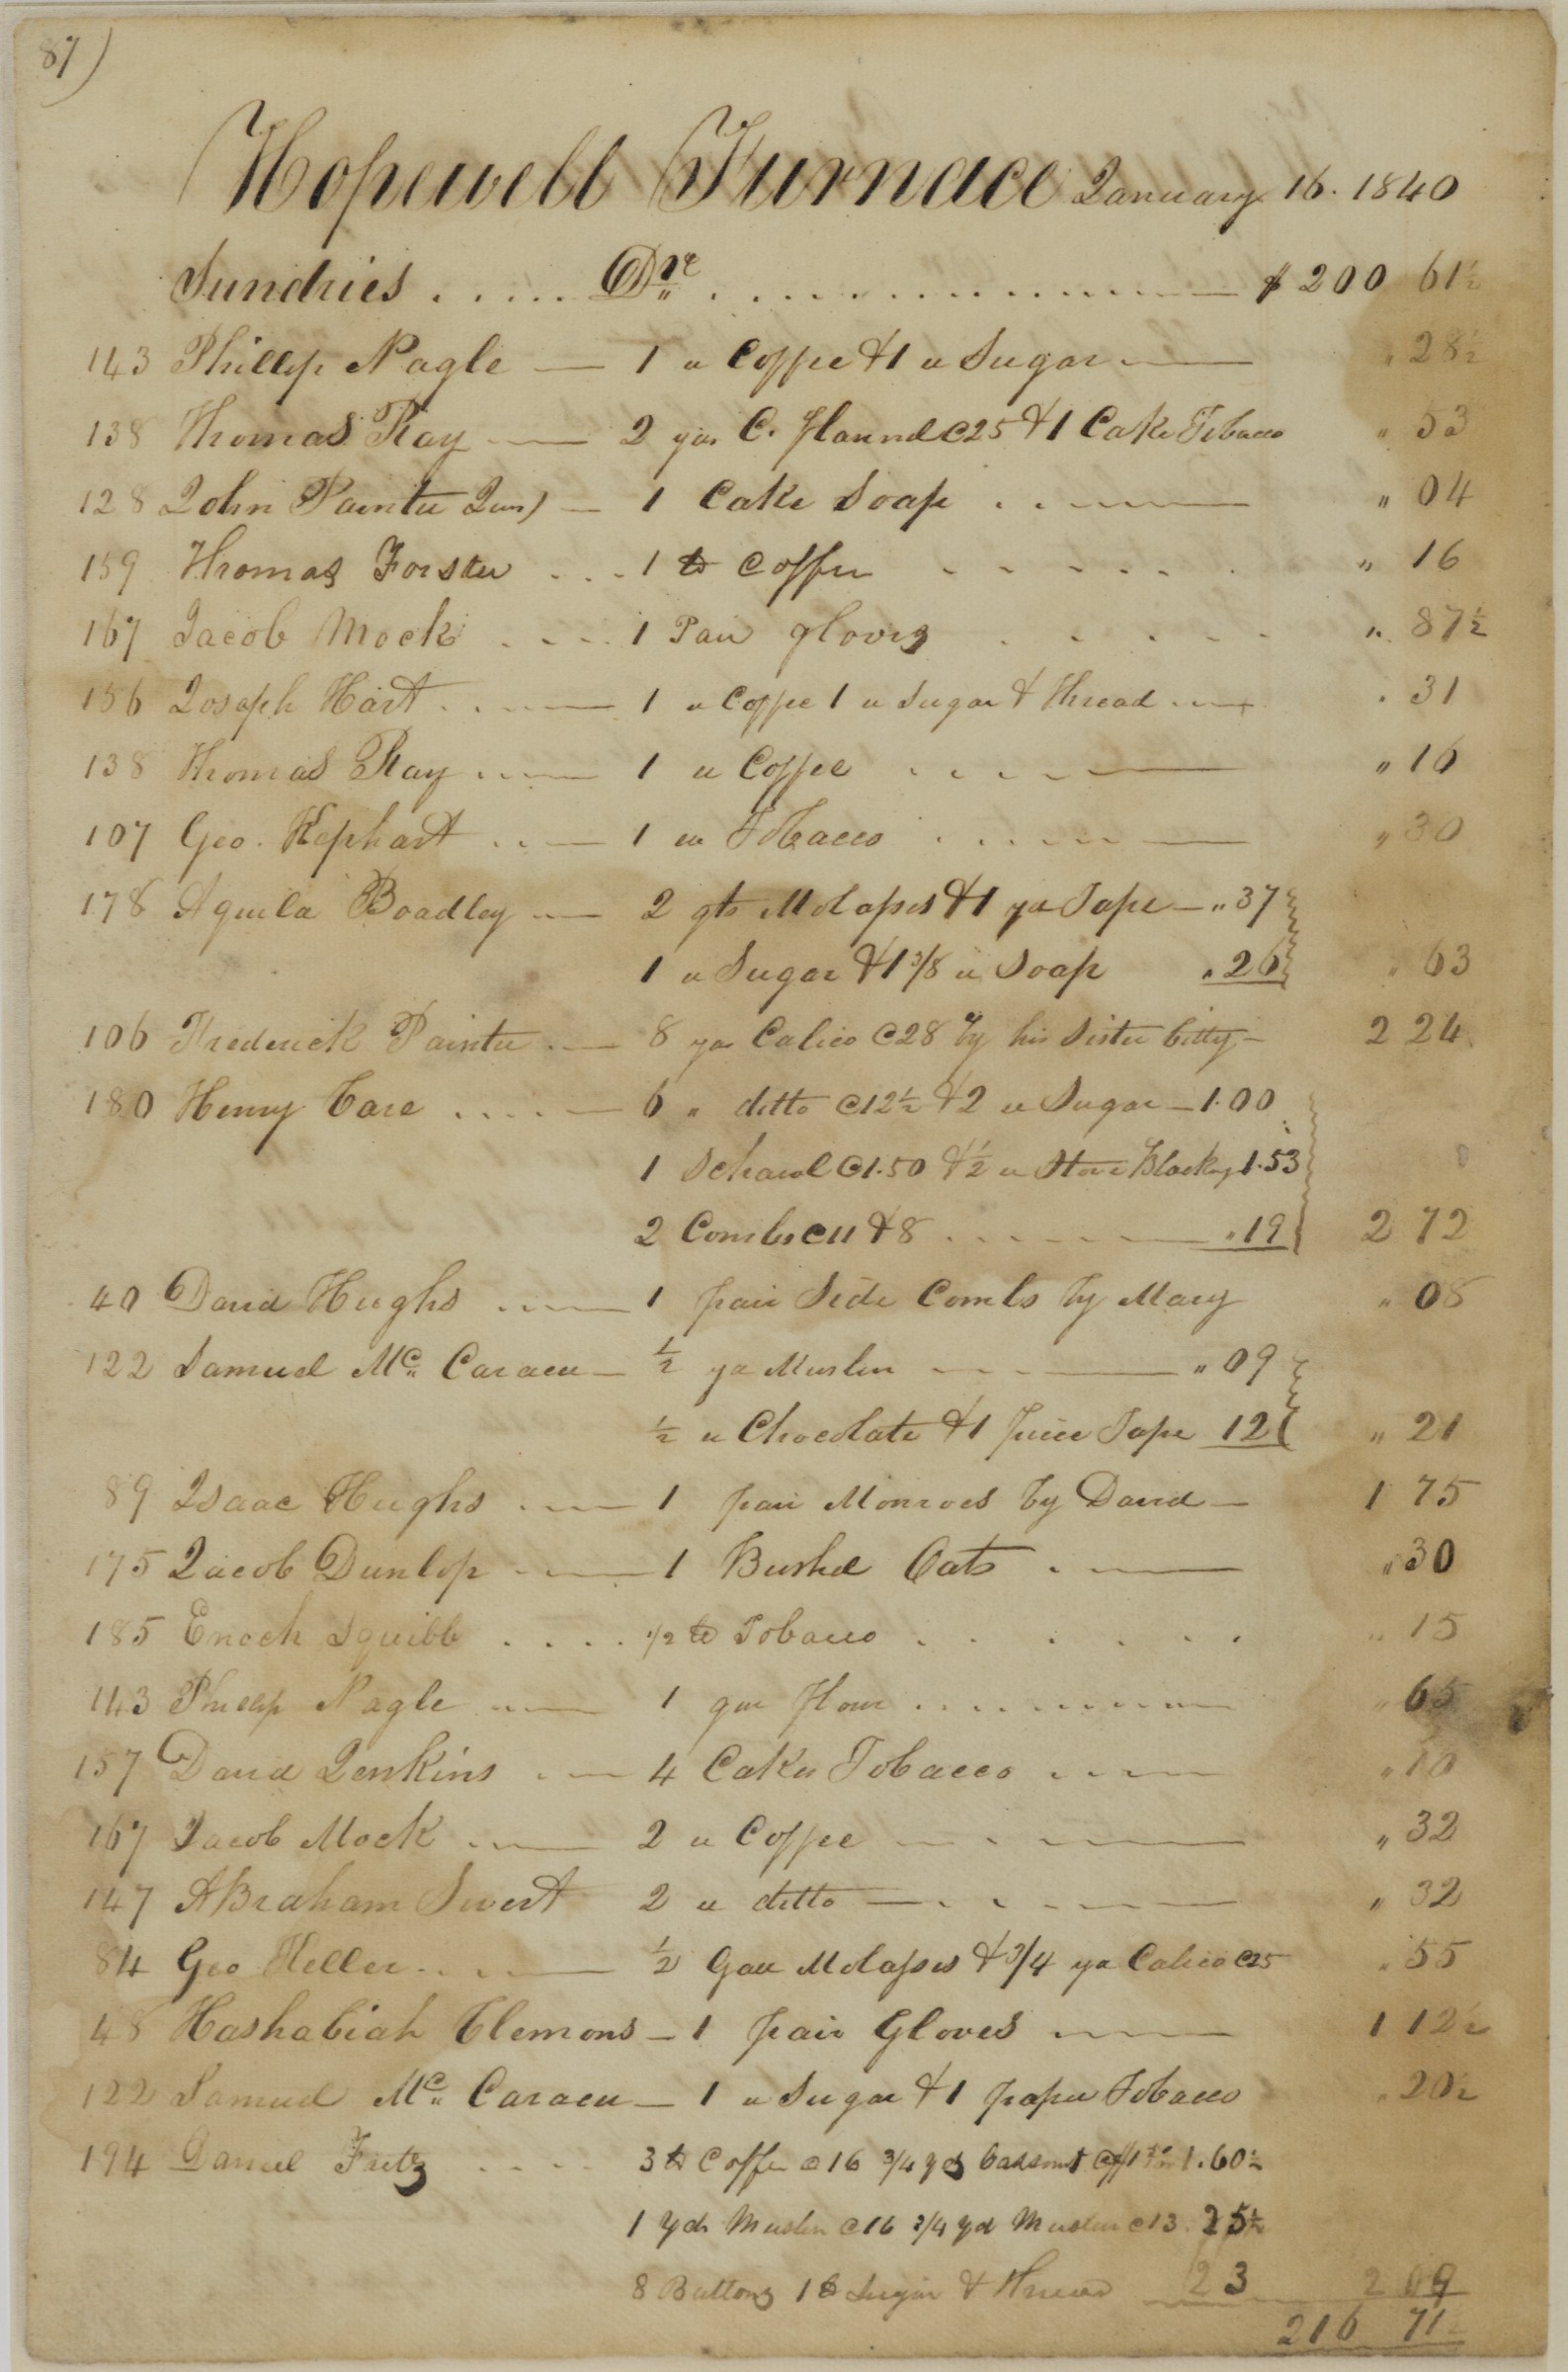 87)
Hopewell Furnace January 16. 1840
Sundries ..... Dre ............... $ 200 61½
143 Phillip Nagle — 1 " Coffee & 1 " Sugar — " 28½
138 Thomas Ray — 2 yds C. flannel @25 & 1 Cake Tobacco " 53
128 John Painter Jun) — 1 Cake Soap .. — " 04
159 Thomas Forster ... 1 lb Coffee ...... " 16
167 Jacob Mock .... 1 Pair gloves ..... " 87½
156 Joseph Hart ... — 1 " Coffee 1 " Sugar & thread ... " 31
138 Thomas Ray ... — 1 " Coffee .... — " 16
107 Geo. Kephart .. — 1 " Tobacco ..... — " 30
178 Aquila Boadley — 2 qts Molasses & 1 yd Tape — " 37
1 " Sugar & 1 3/8 " Soap " 26 " 63
106 Frederick Painter — 8 yds Calico @28 by his Sister Kitty — 2 24
180 Henry Care .... — 6 " ditto @12½ & 2 " Sugar — 1.00
1 Schawl @1.50 & ½ " Stove Blacking 1.53
2 Combs @11 & 8 ..... — " 19 2 72
40 David Hughs ... — 1 pair Side Combs by Mary " 08
122 Samuel Mc. Caraen — ½ yd Muslin ... — " 09
½ " Chocolate & 1 piece Tape 12 " 21
89 Isaac Hughs ... — 1 pair Monroes by David — 1 75
175 Jacob Dunlop — 1 Bushel Oats . — " 30
185 Enoch Squibb .... 1/2 lb Tobacco ...... " 15
143 Phillip Nagle — 1 qur flour ........ " 65
157 David Jenkins . — 4 Cakes Tobacco .... " 10
167 Jacob Mock .. — 2 " Coffee — . — " 32
147 ABraham Swert 2 " ditto — ... — " 32
84 Geo Heller ... — ½ Gall Molasses & 3/4 yd Calico @25 " 55
48 Hashabiah Clemons — 1 pair Gloves — 1 12½
122 Samuel Mc. Caraen — 1 " Sugar & 1 paper Tobacco " 20½
194 Daniel Fritz .... 3 lb Coffee @ 16 3/4 yds @ 1.60½
1 Yds Muslin @ 16 3/4 yd Muslin @ 13 25½
8 Buttons 1 lb Sugar & Thread 23 2 09
216 71½